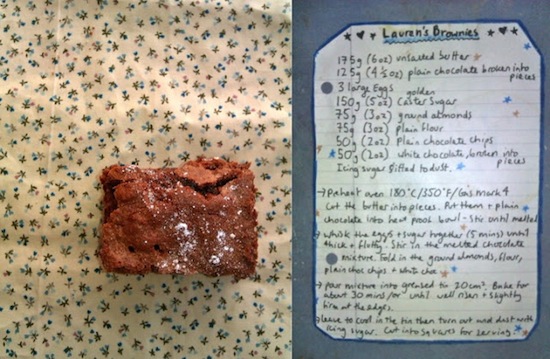 Lauren's Brownies
175g (6oz) unsalted butter
125g (4½oz) plain chocolate broken into
pieces
3 large Eggs
golden
150g (5oz) Caster Sugar
75g (3oz) ground almonds
75g (3oz) plain flour
50g (2oz) Plain chocolate chips
50g (2oz) white chocolate, broken into
pieces
Icing sugar sifted to dust.
→ Preheat oven 180°C/350°F/Gas mark 4
Cut the butter into pieces. Put them + plain
chocolate into heat proof bowl - Stir until melted
→ whisk the eggs + sugar together (5 mins) until
thick + fluffy. Stir in the melted chocolate
mixture. Fold in the ground almonds, flour,
plain choc chips + white choc
→ pour mixture into greased tin 20cm². Bake for
about 30 mins/or until well risen + slightly
firm at the edges.
→ leave to cool in the tin then turn out and dust with
icing sugar. Cut into squares for serving.